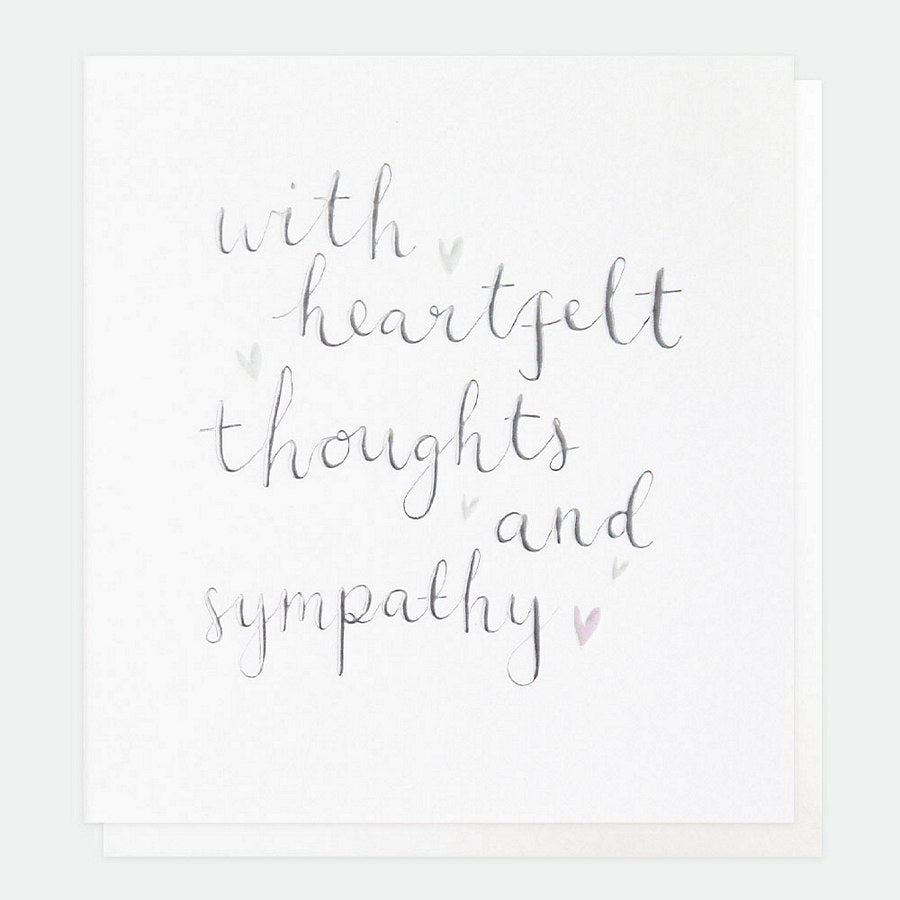 with
heartfelt
thoughts
and
sympathy